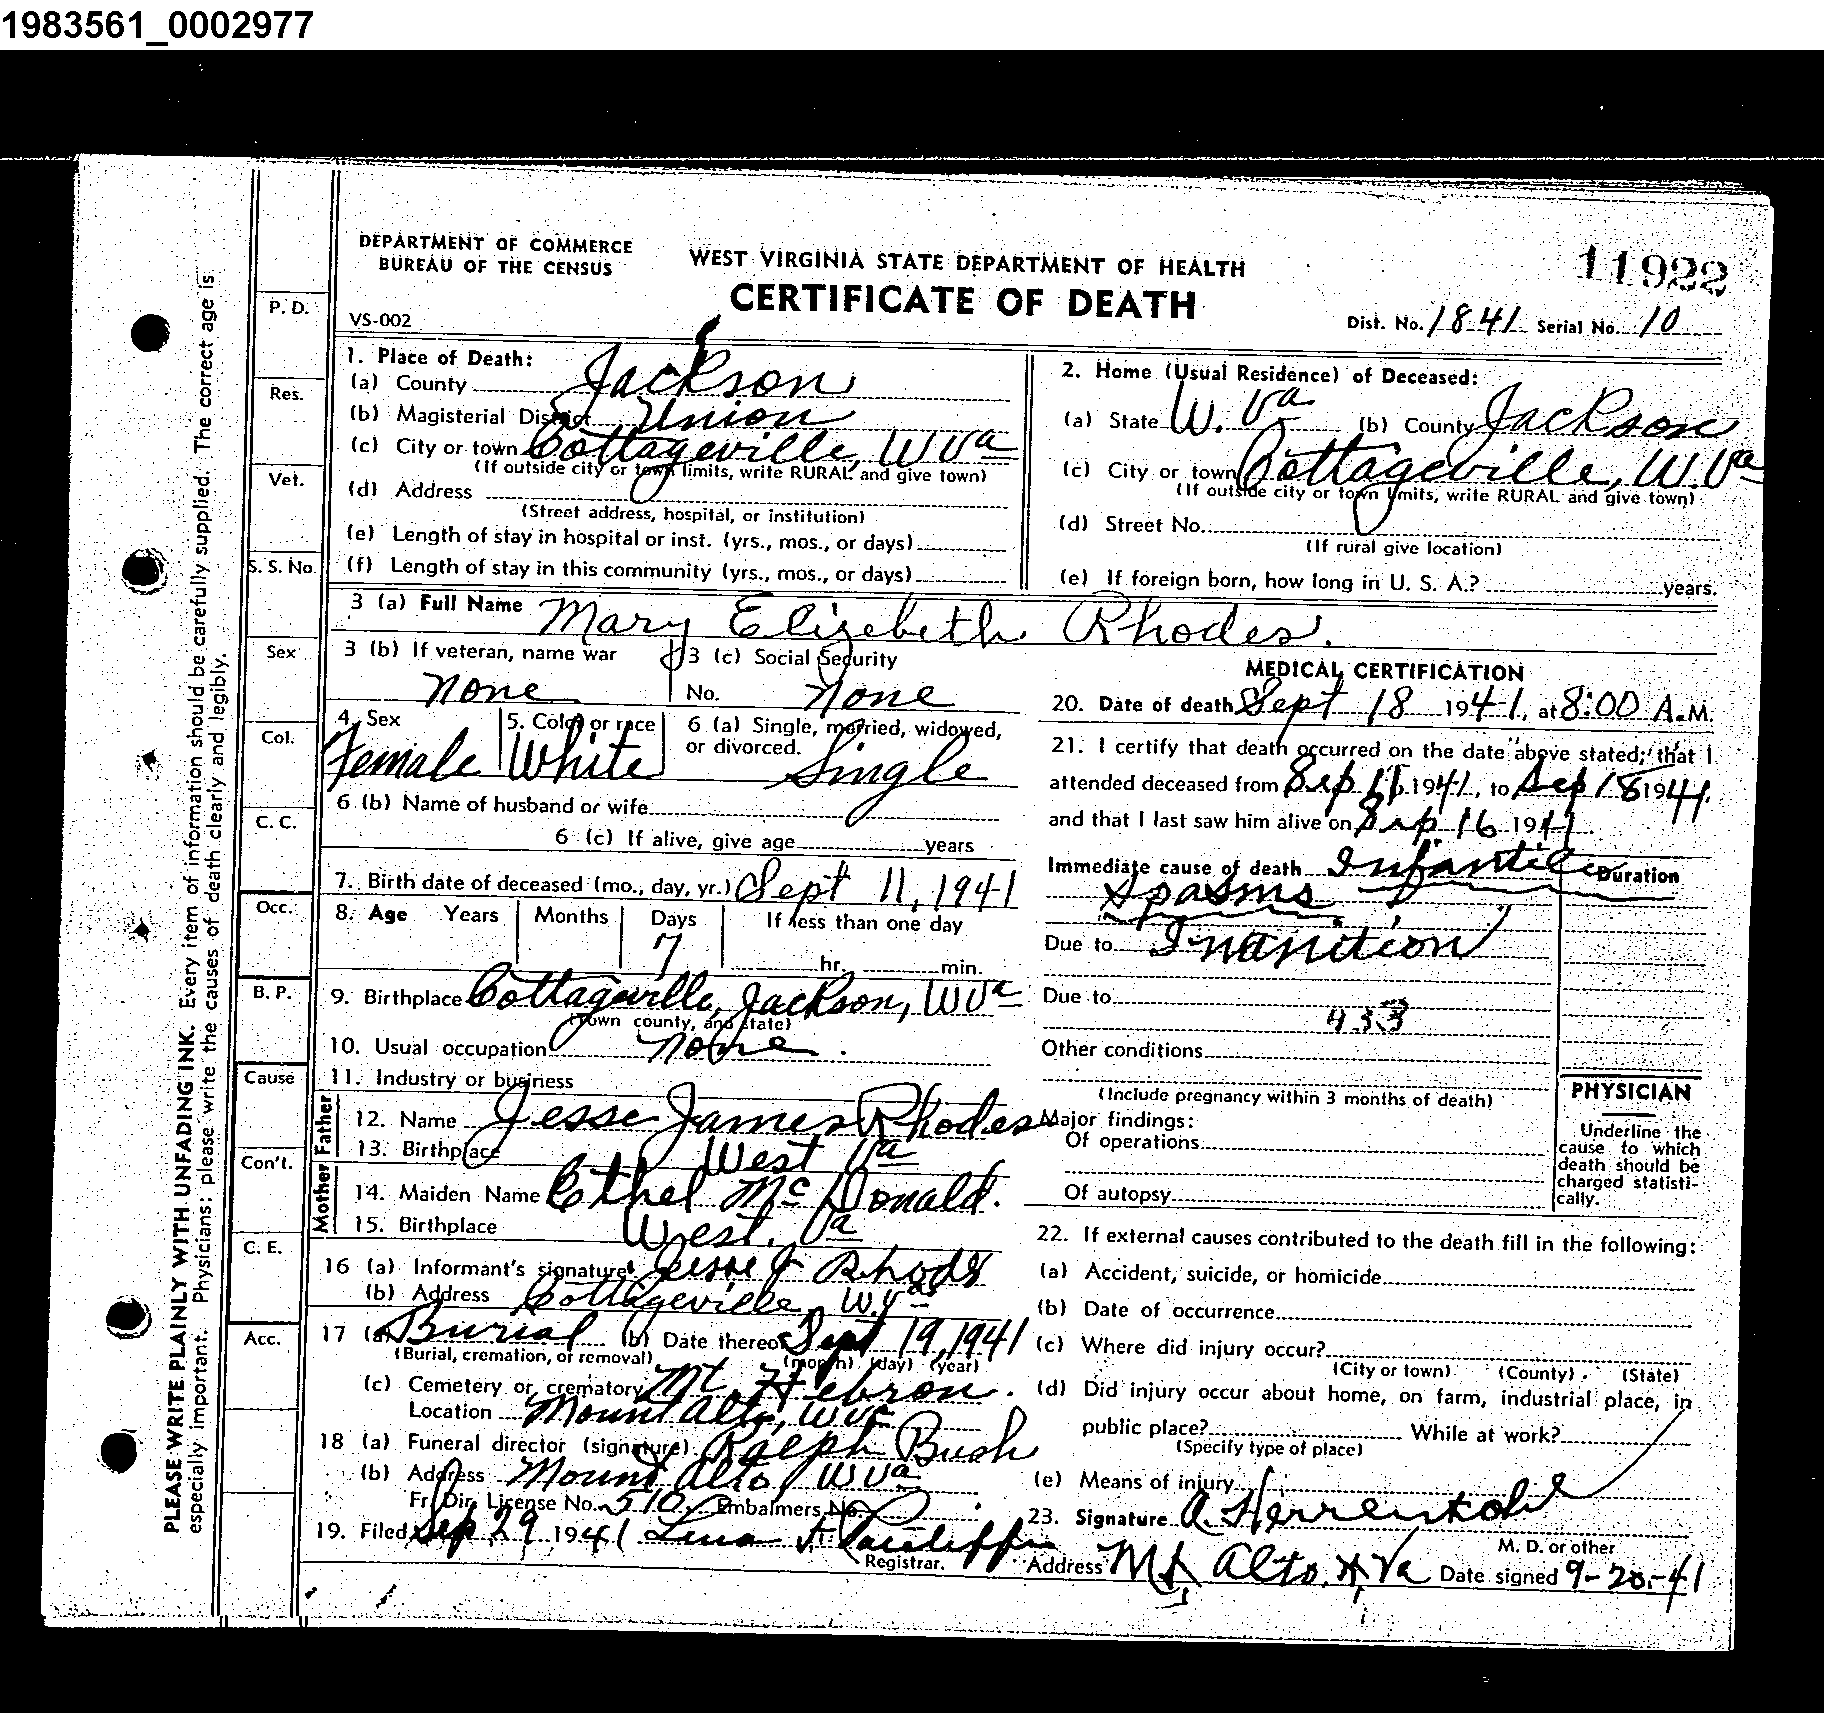 1983561_0002977
DEPARTMENT OF COMMERCE
BUREAU OF THE CENSUS
WEST VIRGINIA STATE DEPARTMENT OF HEALTH
CERTIFICATE OF DEATH
11922
VS-002
Dist. No. 1841 Serial No. 10
1. Place of Death:
(a) County Jackson
(b) Magisterial District Union
(c) City or town Cottageville, W Va
(If outside city or town limits, write RURAL and give town)
(d) Address
(Street address, hospital, or institution)
(e) Length of stay in hospital or inst. (yrs., mos., or days)
(f) Length of stay in this community (yrs., mos., or days)
2. Home (Usual Residence) of Deceased:
(a) State W. Va (b) County Jackson
(c) City or town Cottageville, W. Va
(If outside city or town limits, write RURAL and give town)
(d) Street No.
(If rural give location)
(e) If foreign born, how long in U. S. A.? years.
3 (a) Full Name Mary Elizebeth Rhodes.
3 (b) If veteran, name war
none
3 (c) Social Security
No. none
4. Sex
Female
5. Color or race
White
6 (a) Single, married, widowed,
or divorced. Single
6 (b) Name of husband or wife
6 (c) If alive, give age years
7. Birth date of deceased (mo., day, yr.) Sept 11, 1941
8. Age Years Months Days If less than one day
7 hr. min.
9. Birthplace Cottageville, Jackson, W Va
(Town county, and state)
10. Usual occupation none.
11. Industry or business
Father
12. Name Jesse James Rhodes
13. Birthplace West Va
Mother
14. Maiden Name Ethel Mc Donald.
15. Birthplace West. Va
16 (a) Informant's signature Jesse J Rhods
(b) Address Cottageville W. Va
17 (a) Burial (b) Date thereof Sept 19, 1941
(Burial, cremation, or removal) (month) (day) (year)
(c) Cemetery or crematory Mt. Hebron.
Location Mount Alto, W Va
18 (a) Funeral director (signature) Ralph Bush
(b) Address Mount Alto, W Va
Fr. Dir. License No. 510 Embalmers No.
19. Filed Sep 29 1941 Lina
Registrar.
MEDICAL CERTIFICATION
20. Date of death Sept 18 1941, at 8:00 A.M.
21. I certify that death occurred on the date above stated; that I
attended deceased from Sep 11 1941, to Sep 18 1941.
and that I last saw him alive on Sep 16 1941
Immediate cause of death Infantile Duration
Spasms
Due to Inanition
Due to
433
Other conditions
(Include pregnancy within 3 months of death)
Major findings:
Of operations
Of autopsy
PHYSICIAN
Underline the
cause to which
death should be
charged statisti-
cally.
22. If external causes contributed to the death fill in the following:
(a) Accident, suicide, or homicide
(b) Date of occurrence
(c) Where did injury occur?
(City or town) (County) (State)
(d) Did injury occur about home, on farm, industrial place, in
public place? While at work?
(Specify type of place)
(e) Means of injury
23. Signature A. Herrenkohl
M. D. or other
Address Mt, Alto. W, Va Date signed 9-20-41
P. D.
Res.
Vet.
S. S. No.
Sex
Col.
C. C.
Occ.
B. P.
Cause
Con't.
C. E.
Acc.
PLEASE WRITE PLAINLY WITH UNFADING INK. Every item of information should be carefully supplied. The correct age is
especially important. Physicians: please write the causes of death clearly and legibly.